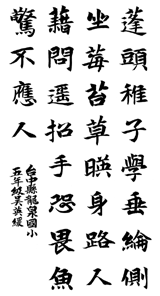 蓬頭稚子學垂綸側
坐莓苔草暎身路人
藉問遥招手恐畏魚
驚不應人
台中縣龍泉國小
五年級吳英